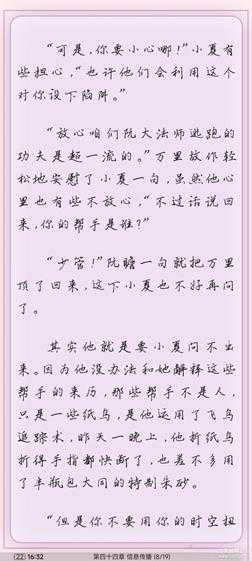 “可是,你要小心哪!”小夏有
些担心,“也许他们会利用这个
对你设下陷阱。”
“放心咱们阮大法师逃跑的
功夫是超一流的。”万里故作轻
松地安慰了小夏一句,虽然他心
里也有些不放心,“不过话说回
来,你的帮手是谁?”
“少管!”阮瞻一句就把万里
顶了回来,这下小夏也不好再问
了。
其实他就是要小夏问不出
来。因为他没办法和她解释这些
帮手的来历,那些帮手不是人,
只是一些纸鸟,是他运用了飞鸟
追踪术,昨天一晚上,他折纸鸟
折得手指都快断了,也差不多用
了半瓶包大同的特制朱砂。
“但是你不要用你的时空扭
(22) 16:32 第四十四章 信息传播 (8/19)